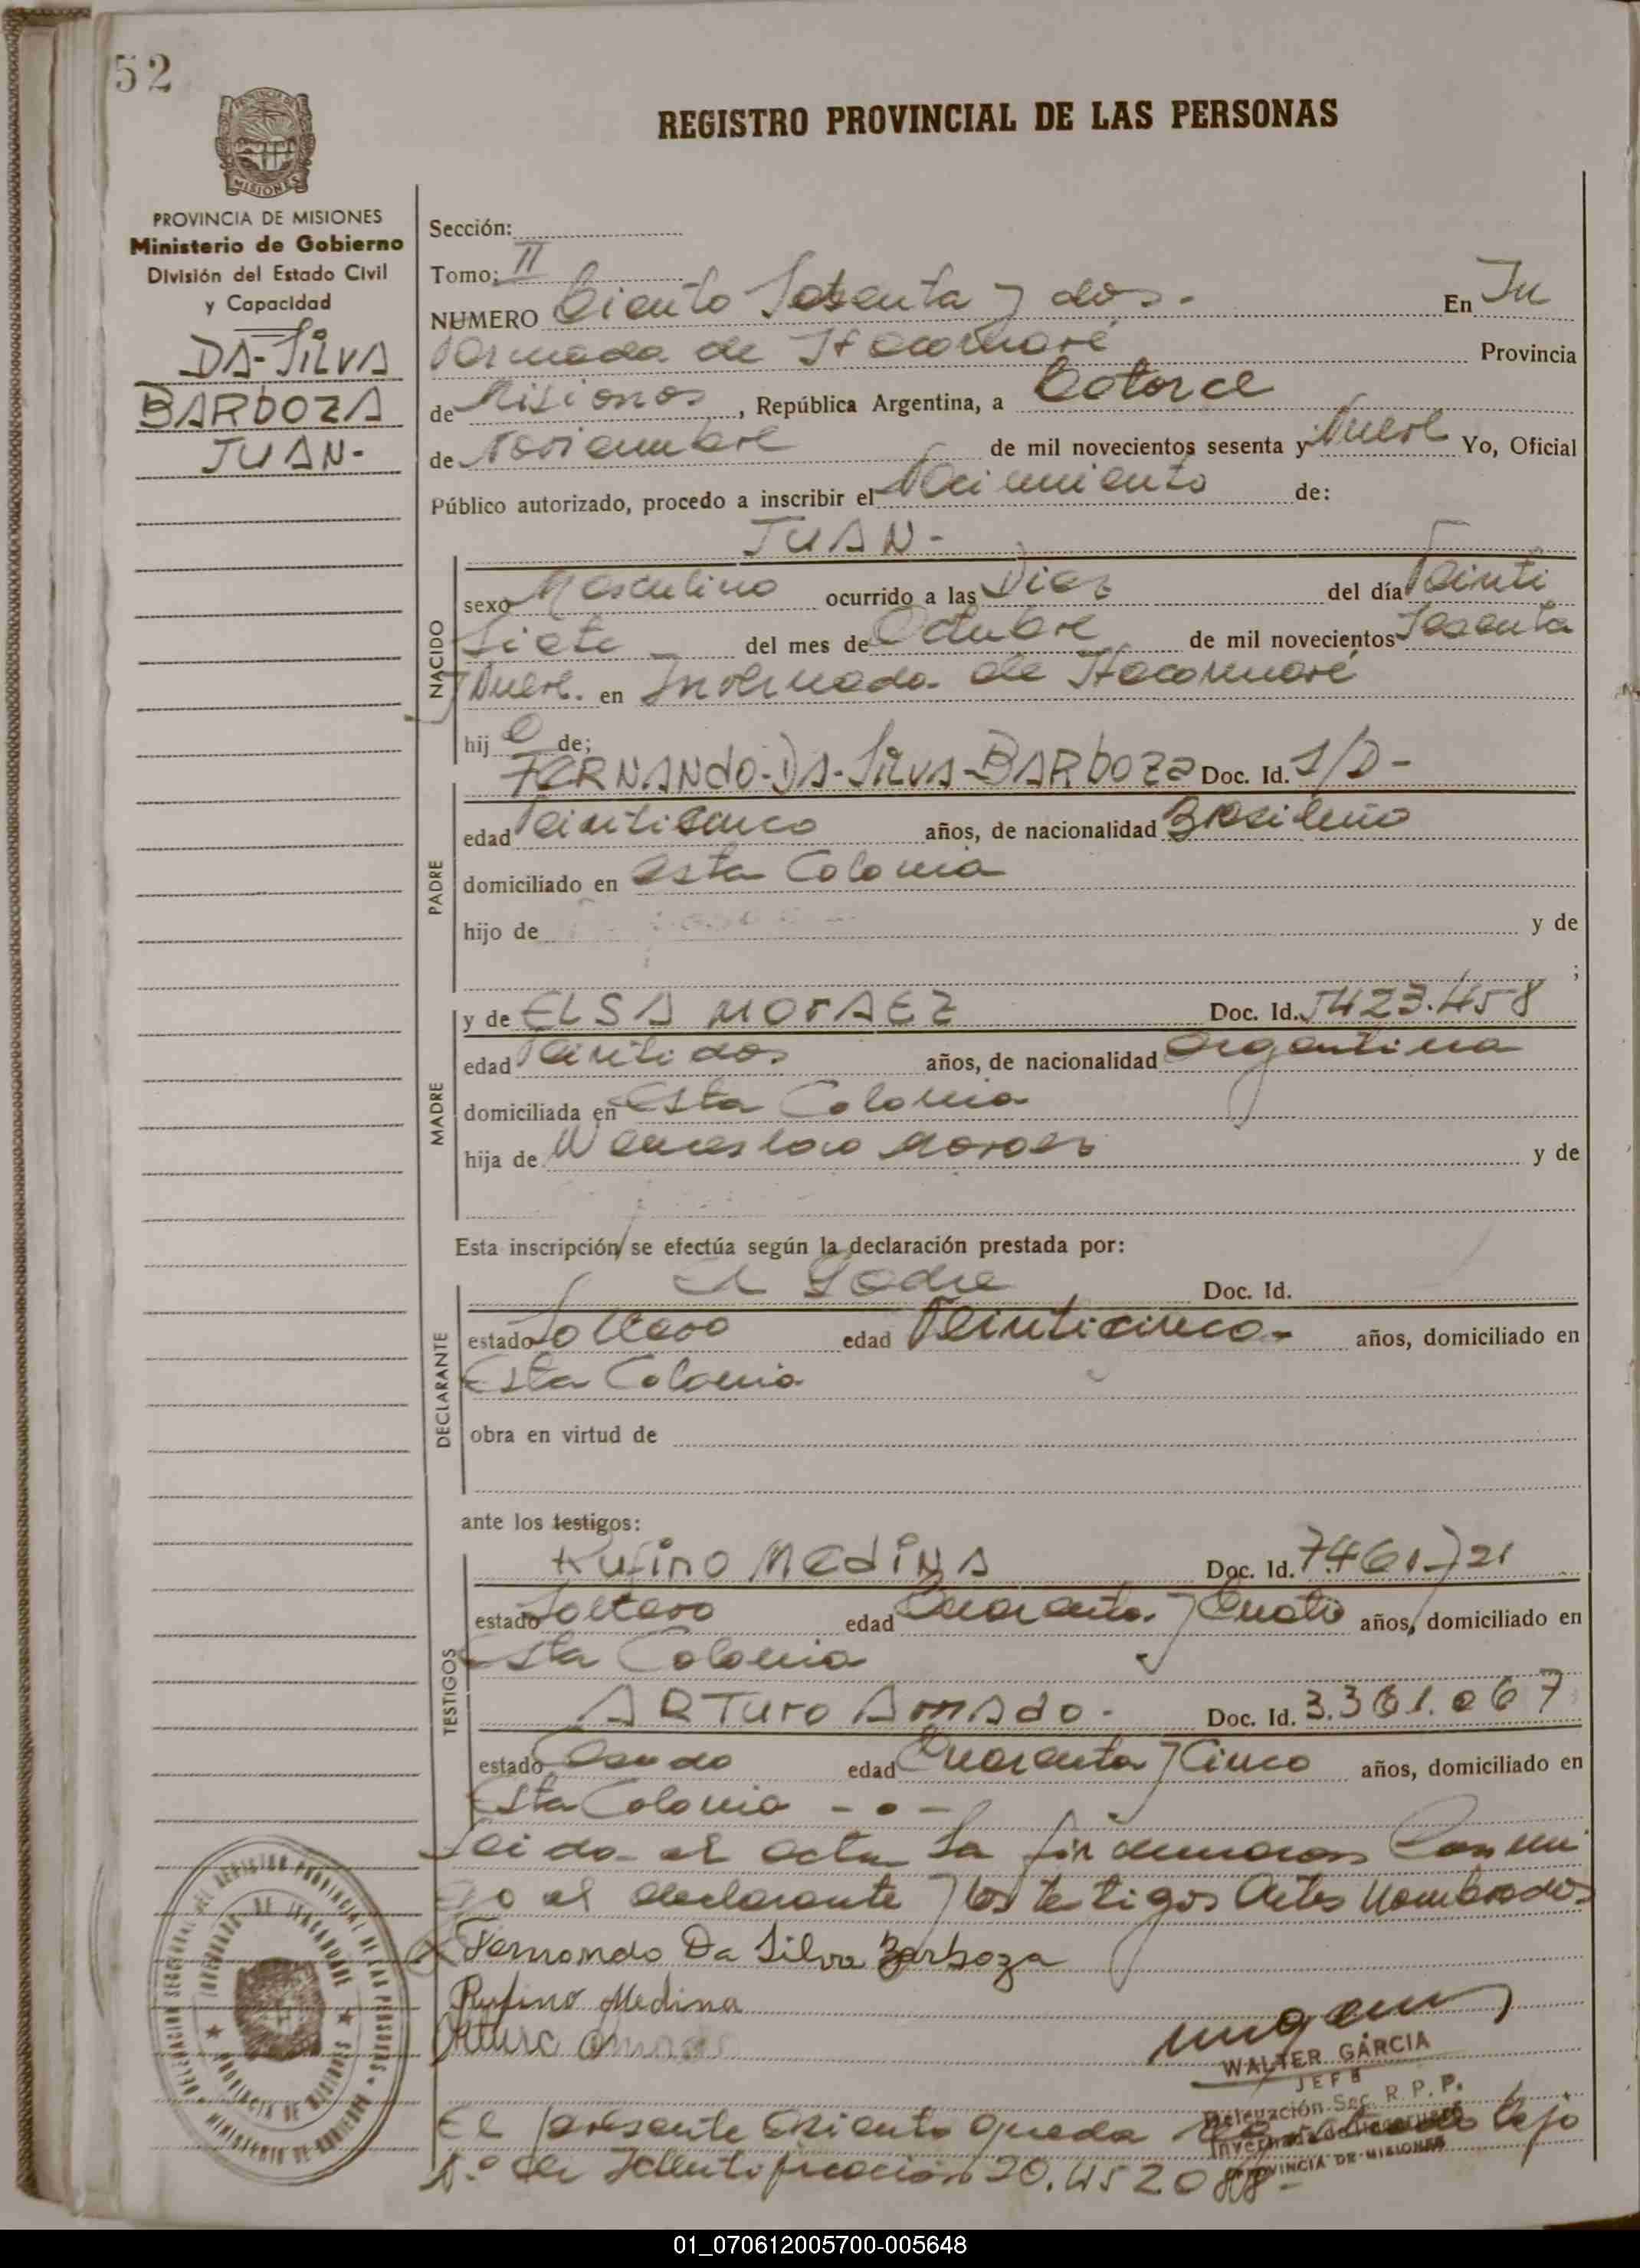 52
REGISTRO PROVINCIAL DE LAS PERSONAS
PROVINCIA DE MISIONES
Ministerio de Gobierno
División del Estado Civil
y Capacidad
DA-SiLVA
BARbOZA
JUAN-
Sección:
Tomo: II
NUMERO Ciento Setenta y dos. En In
vernada de Itacaruaré Provincia
de Misiones, República Argentina, a Catorce
de Noviembre de mil novecientos sesenta y Nueve Yo, Oficial
Público autorizado, procedo a inscribir el Nacimiento de:
JUAN-
NACIDO
sexo Masculino ocurrido a las Diez del día Veinti
Siete del mes de Octubre de mil novecientos Sesenta
y Nueve. en Invernada de Itacaruaré
hij o de;
PADRE
FERNANdO-DA-SiLVA-BARbOZa Doc. Id. S/D-
edad Veinticinco años, de nacionalidad Brasileño
domiciliado en esta Colonia
hijo de y de
;
MADRE
y de ELSA MORAEZ Doc. Id. 5423.458
edad Veintidos años, de nacionalidad Argentina
domiciliada en Esta Colonia
hija de Wenceslao Moraez y de
Esta inscripción se efectúa según la declaración prestada por:
DECLARANTE
El Padre Doc. Id.
estado Soltero edad Veinticinco- años, domiciliado en
Esta Colonia
obra en virtud de
ante los testigos:
TESTIGOS
Rufino MediNA Doc. Id. 7.461.721
estado Soltero edad Cuarenta y Cuatro años, domiciliado en
Esta Colonia
ARTuro AmAdo- Doc. Id. 3.361.067
estado Casado edad Cuarenta y Cinco años, domiciliado en
Esta Colonia -.-
Leida el acta la firman Conmi
go el declarante y los testigos Antes Nombrados
Fernando Da Silva Barboza
Rufino Medina
Arturo Amado
WALTER GARCIA
JEFE
Delegación Sec. R. P. P.
Invernada de Itacaruaré
PROVINCIA DE MISIONES
El presente Asiento queda bajo
N.º de Identificación 20.452088-
MINISTERIO DE GOBIERNO
INVERNADA DE ITACARUARE
PROVINCIA DE MISIONES
01_070612005700-005648